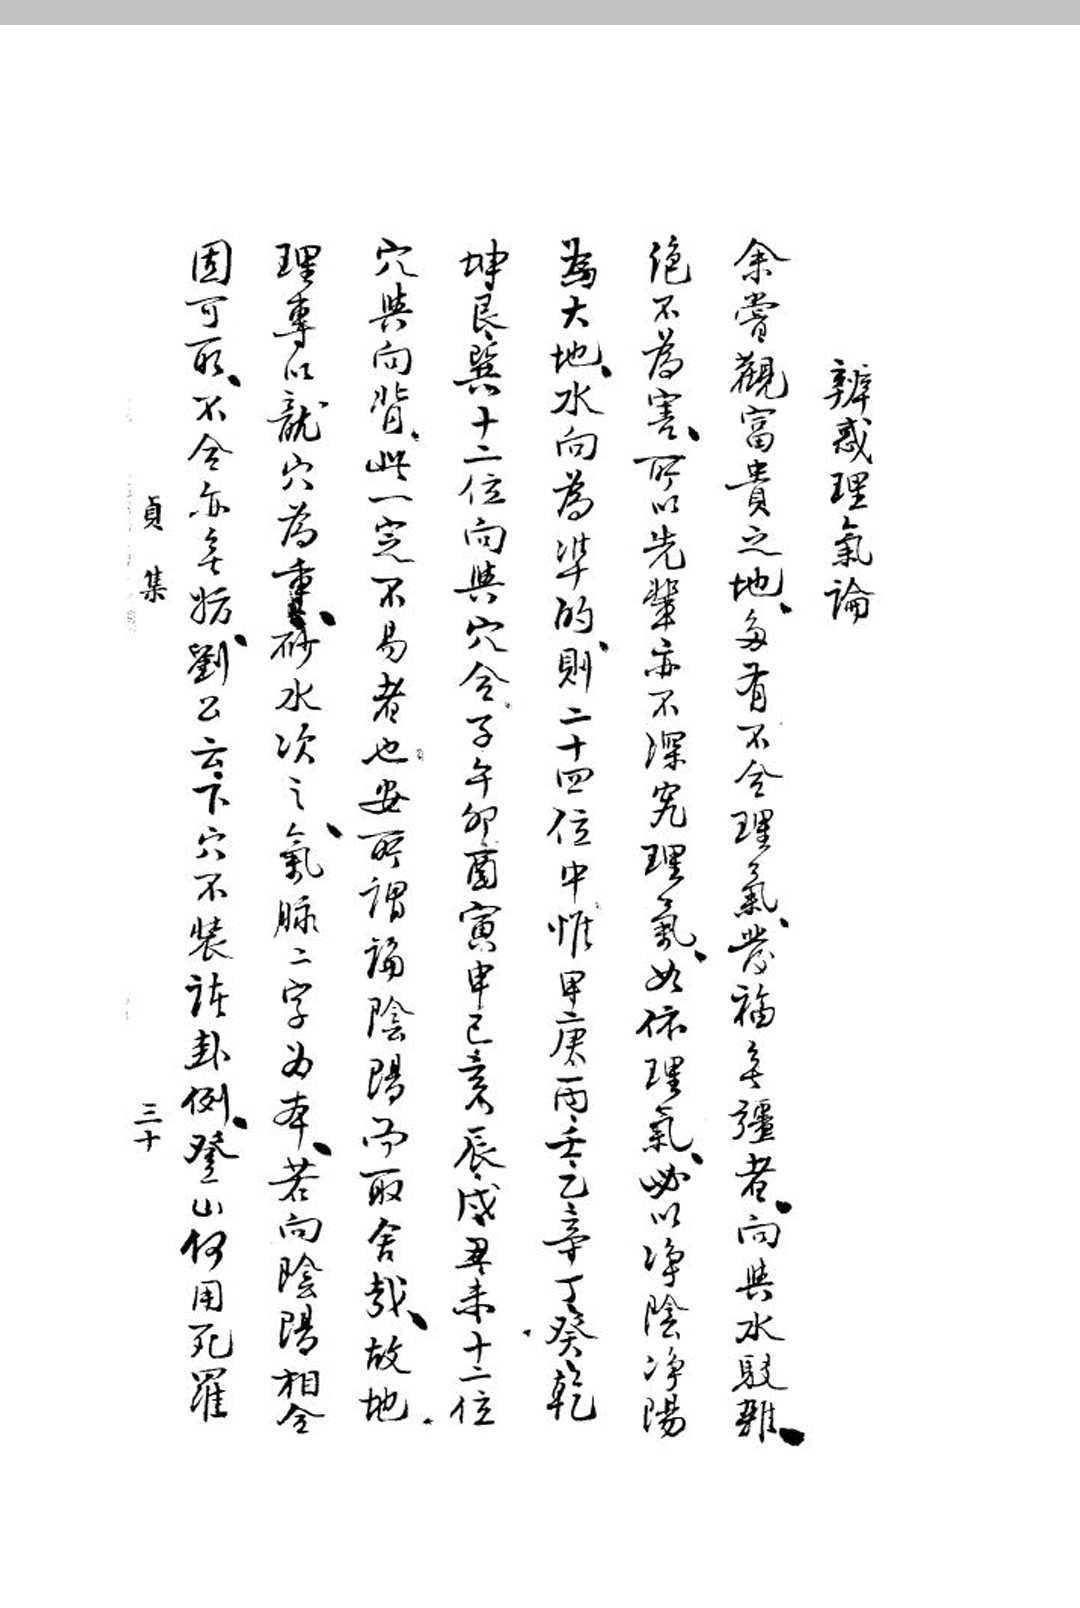 辨惑理氣論
余嘗觀富貴之地、多有不合理氣、發福無疆者、向與水駁雜、
絕不為害、所以先輩亦不深究理氣、如依理氣、必以淨陰淨陽
為大地、水向為準的、則二十四位中惟甲庚丙壬乙辛丁癸乾
坤艮巽十二位向與穴合、子午卯酉寅申巳亥辰戌丑未十二位
穴與向背、此一定不易者也。安所謂論陰陽而取舍哉、故地
理專以龍穴為重、砂水次之、氣脉二字為本、若向陰陽相合
固可取、不合亦無妨、劉公云下穴不裝諸卦例、登山何用死羅
貞集
三十